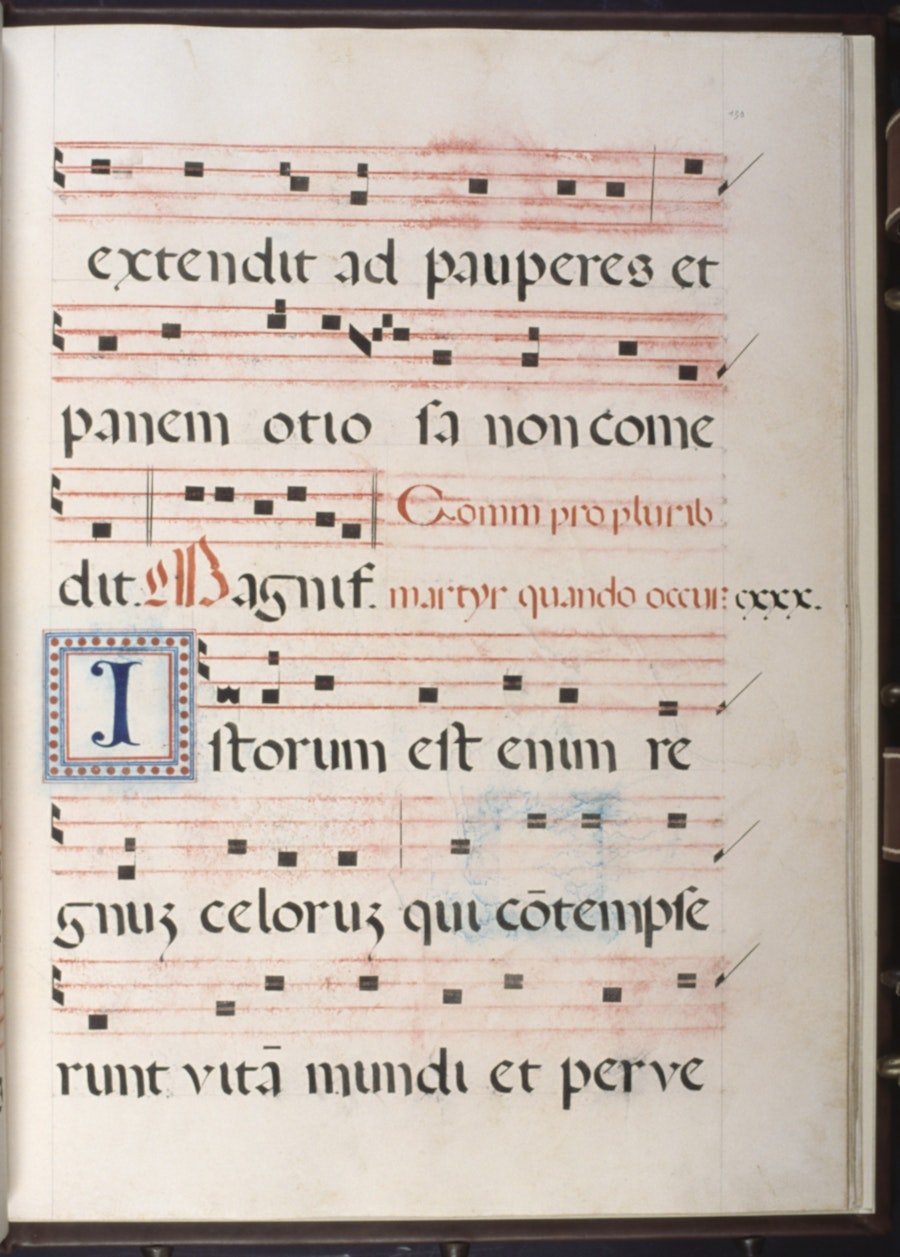 extendit ad pauperes et
panem otio sa non come
Comm pro plurib
dit. Magnif. martyr quando occur: cxxx.
Istorum est enim re
gnuʒ celoruʒ qui cōtempse
runt vitā mundi et perve